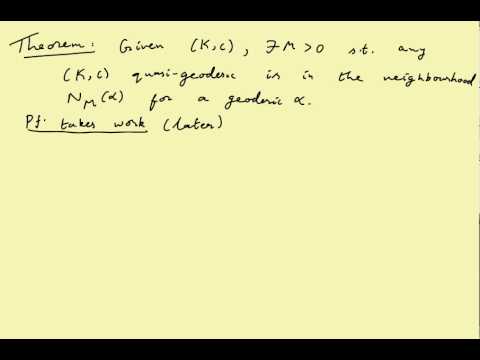 Theorem: Given (K,c), ∃M>0 s.t. any
(K,c) quasi-geodesic is in the neighbourhood
N_M(α) for a geodesic α.
Pf: takes work (later)